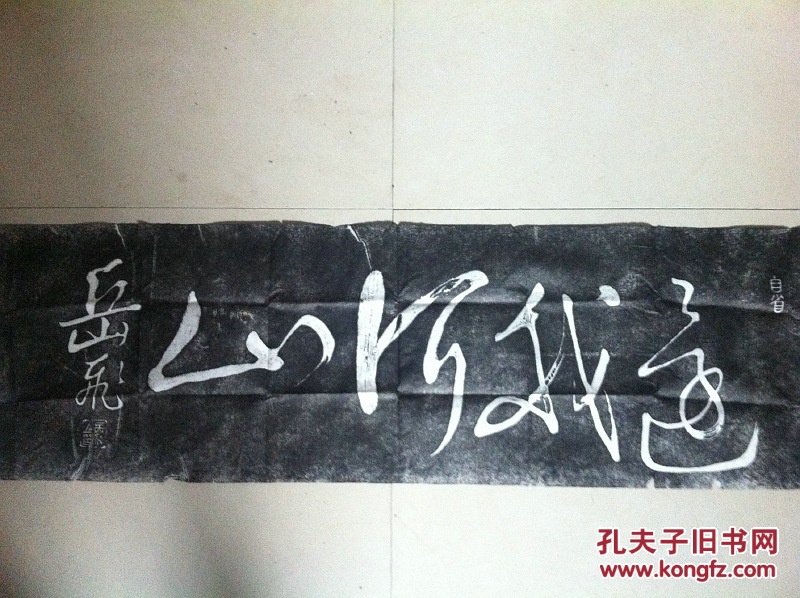 自省
还我河山
岳飞
孔夫子旧书网
www.kongfz.com